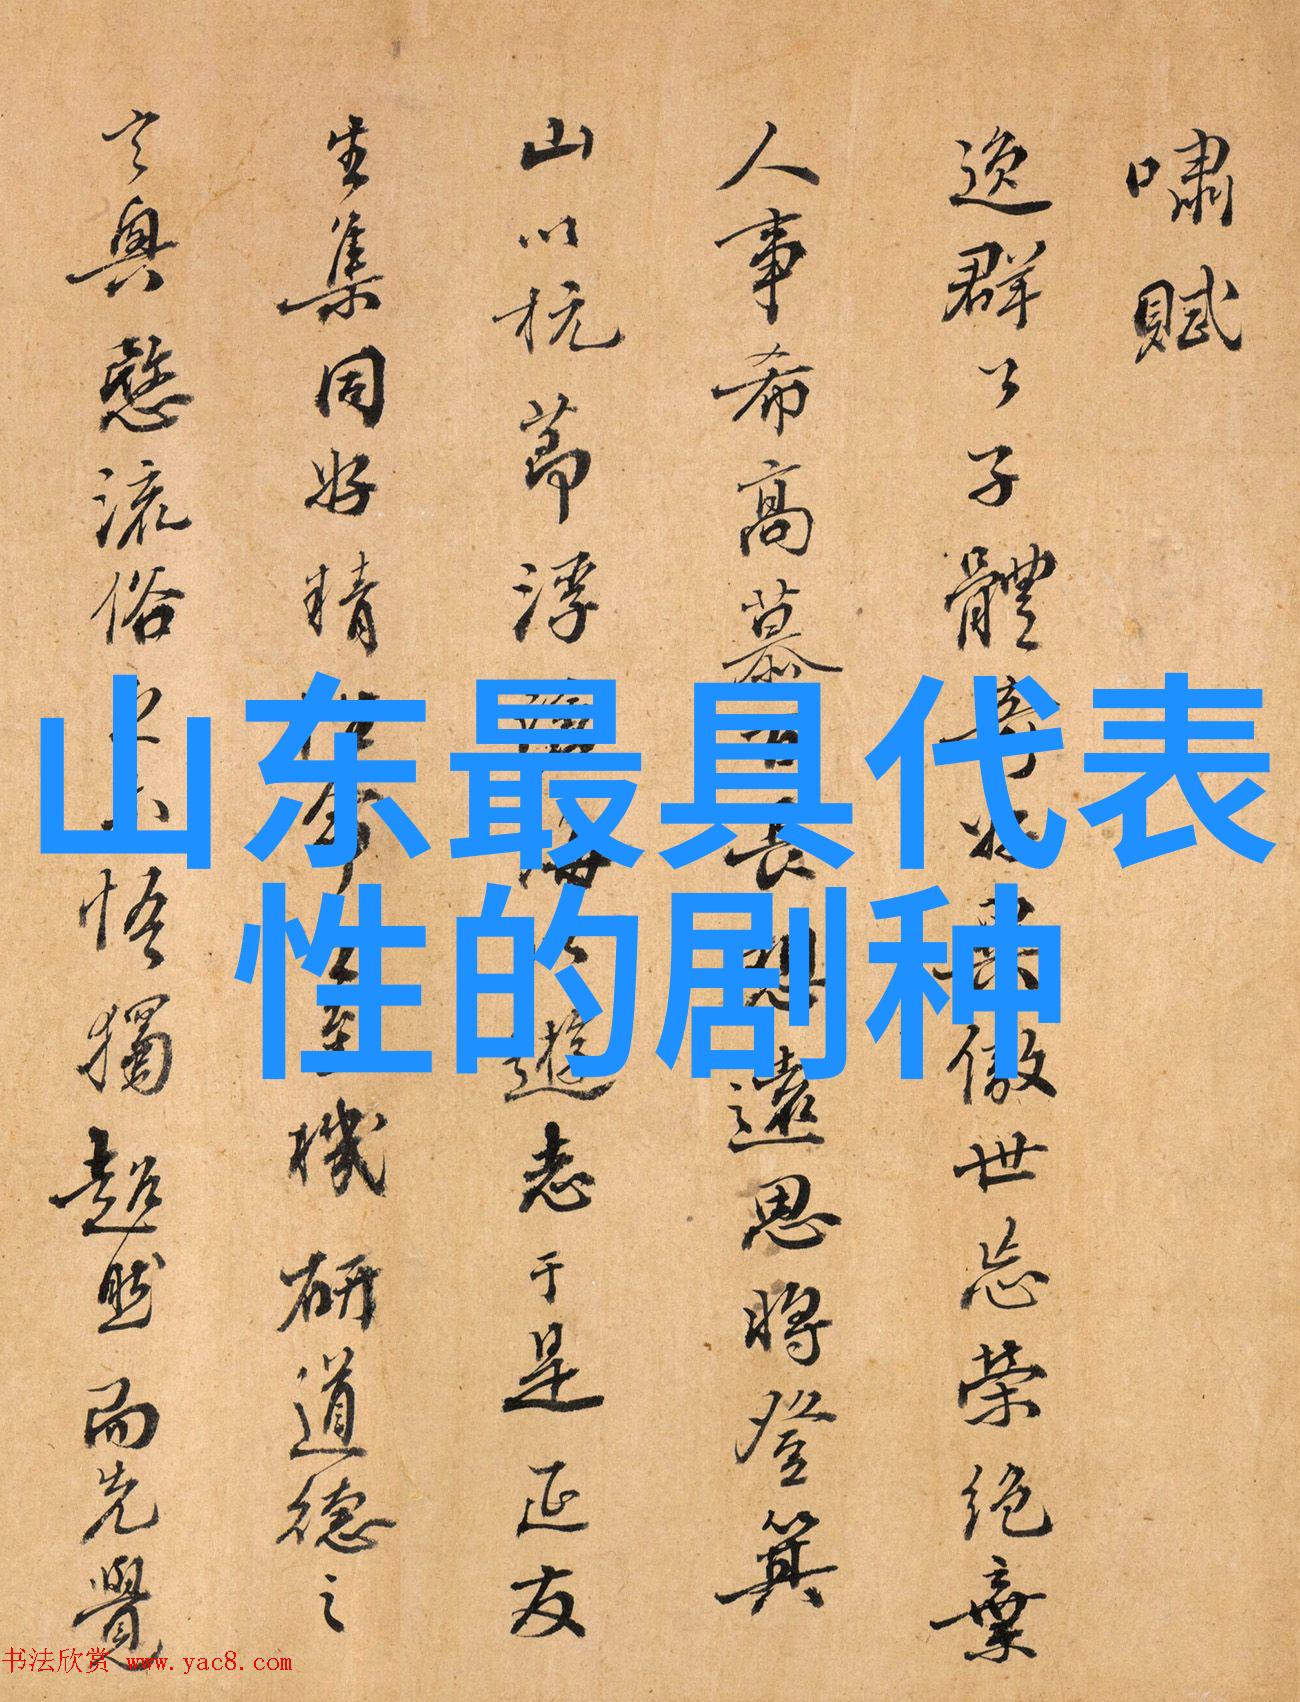 嘯賦
逸群公子體奇好異傲世忘榮絕棄
人事希高慕古長想遠思將登箕
山以抗節浮滄海以遊志于是延友
生集同好精性命之至機研道德之
玄奧愍流俗之未悟獨超然而先覺
山东最具代表
性的剧种
书法欣赏 www.yac8.com